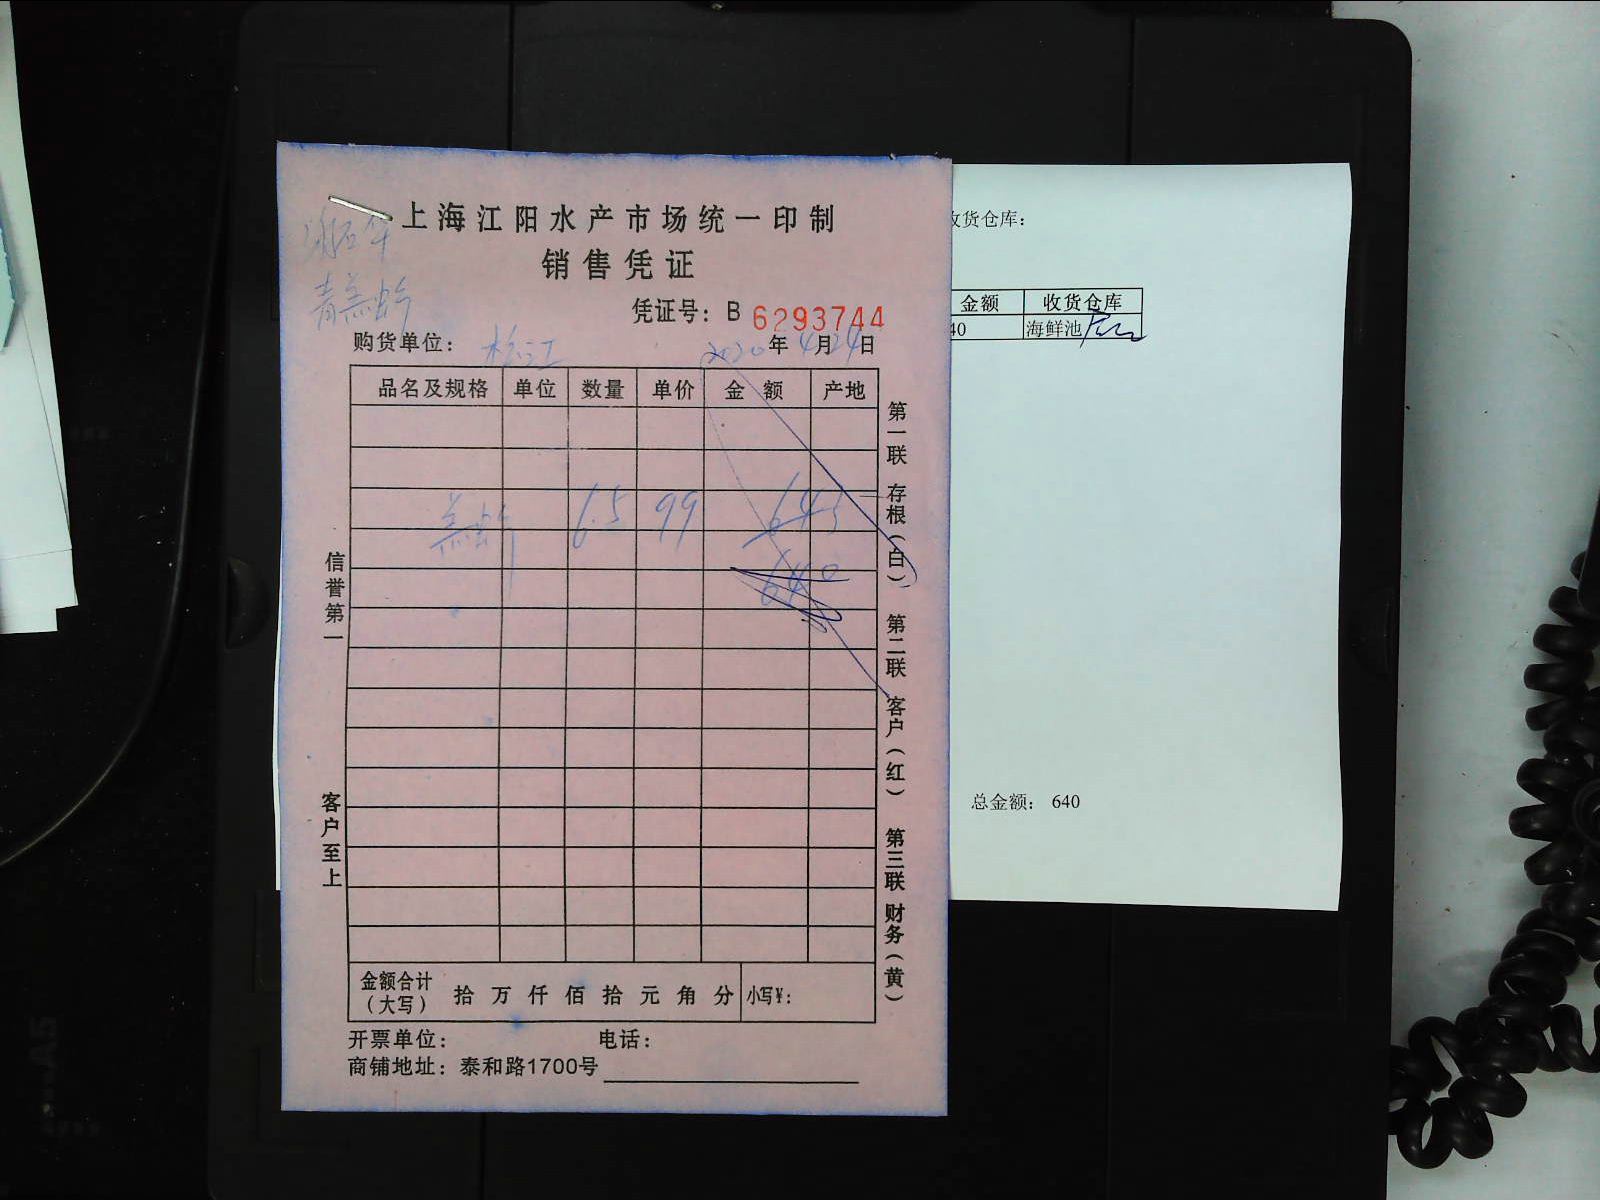 上海江阳水产市场统一印制
销售凭证
凭证号：B 6293744
购货单位： 松江 2020年4月24日
品名及规格 单位 数量 单价 金 额 产地
6.5 99 643
640
信誉第一
客户至上
第一联 存根（白） 第二联 客户（红） 第三联 财务（黄）
金额合计（大写） 拾 万 仟 佰 拾 元 角 分 小写¥：
开票单位： 电话：
商铺地址：泰和路1700号
收货仓库：
金额 收货仓库
40 海鲜池
总金额： 640